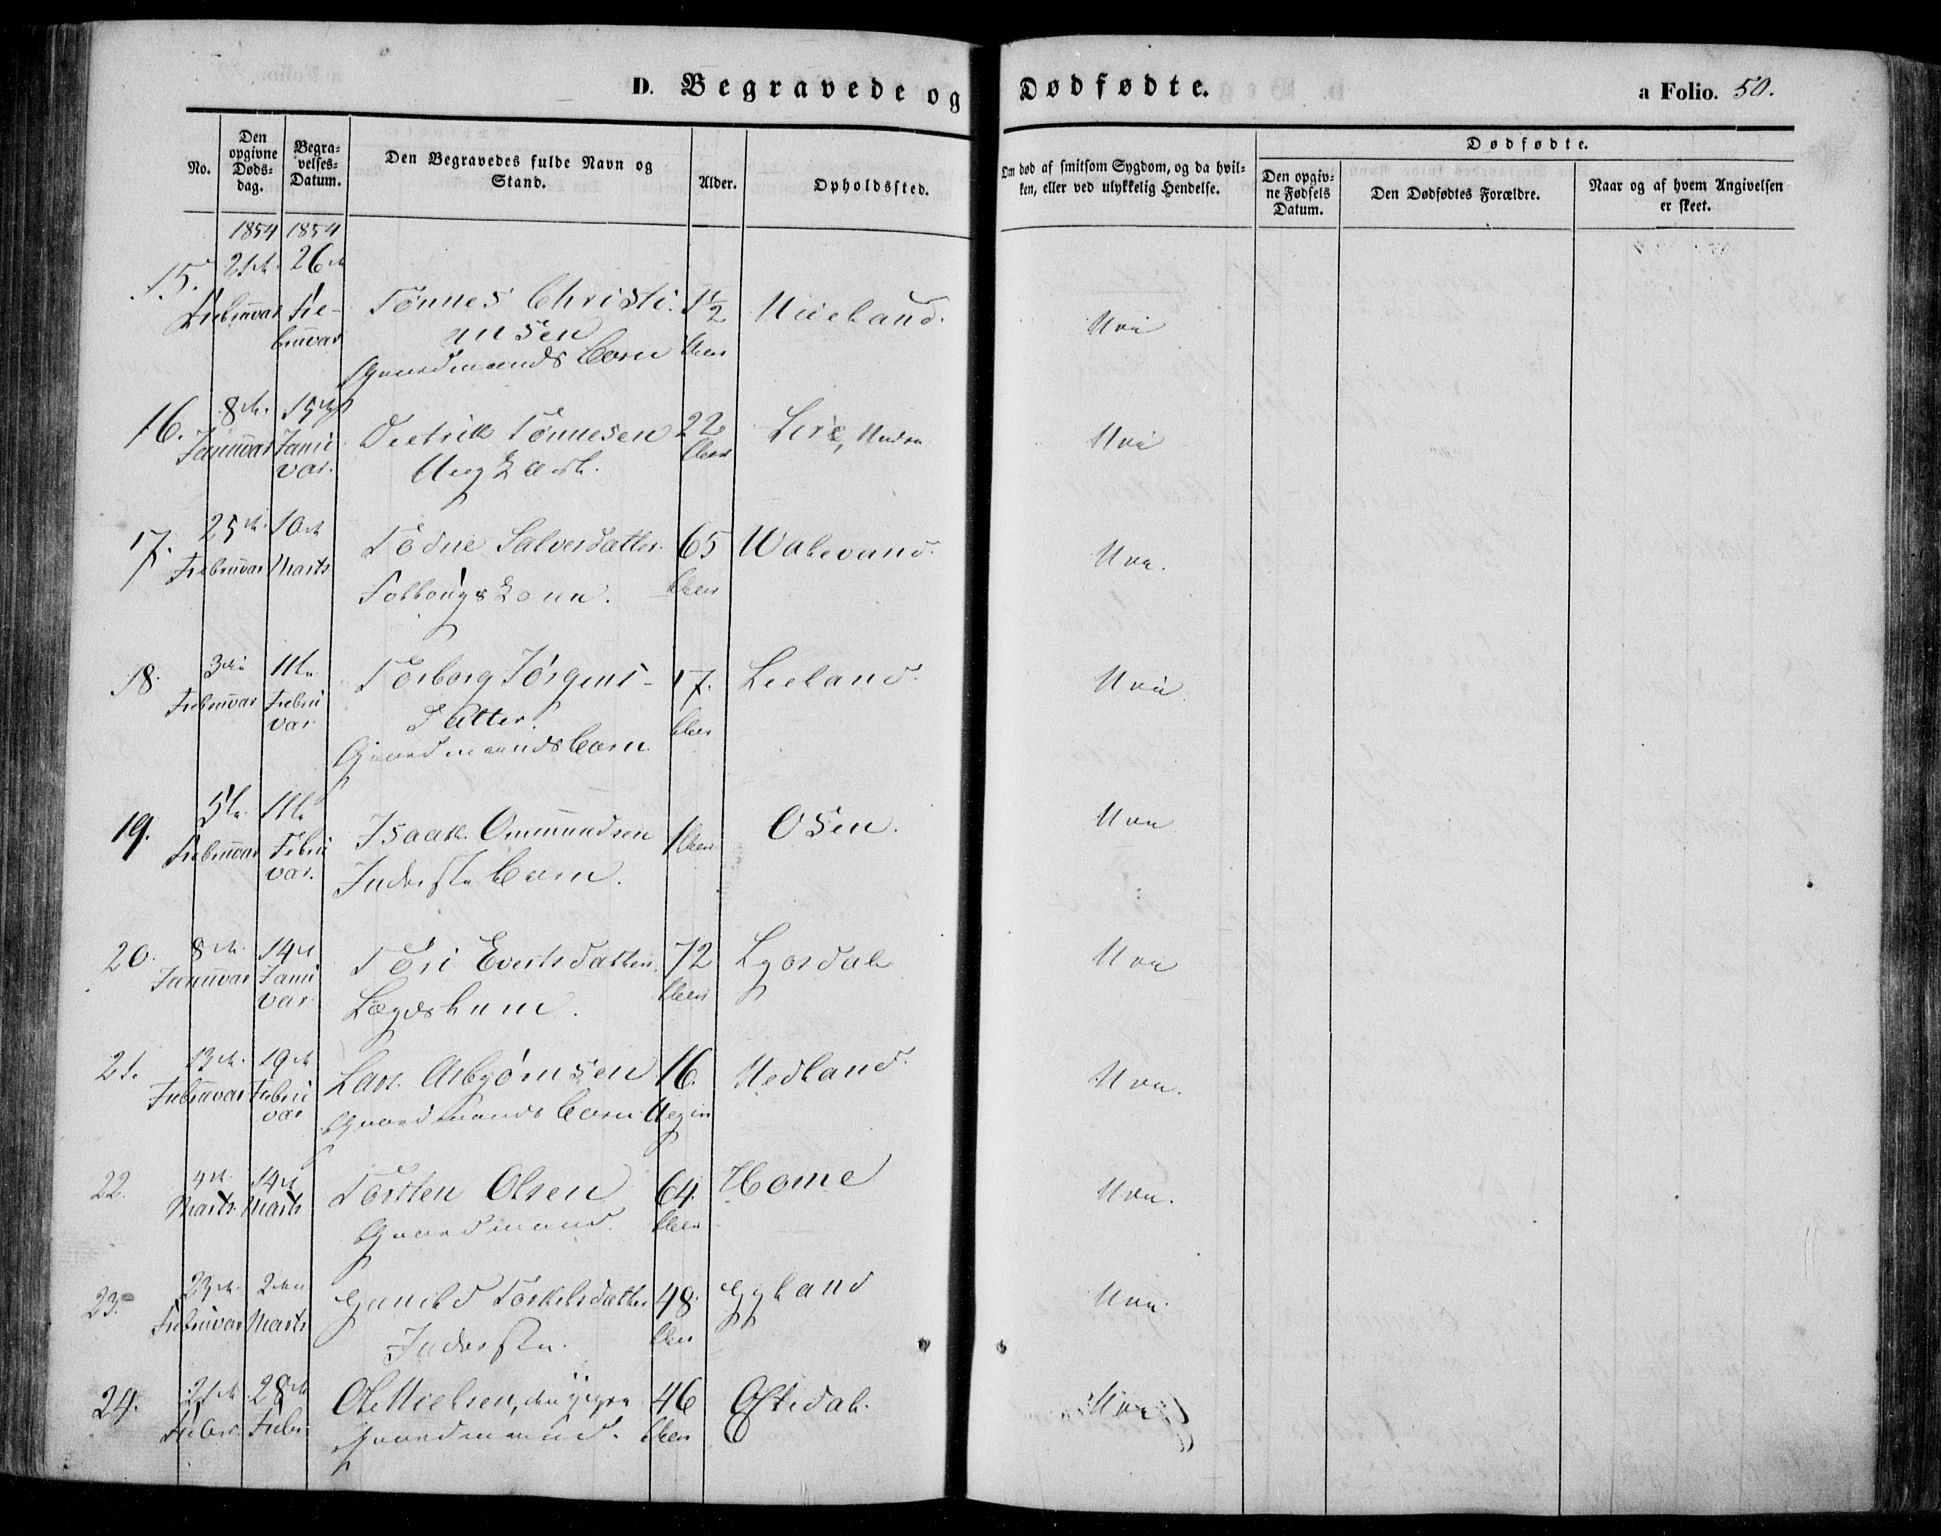 D. Begravede og Dødfødte.
a Folio. 50.
No.
Den opgivne Døds-dag.
Begra-velses-Datum.
Den Begravedes fulde Navn og Stand.
Alder.
Opholdssted.
Om død af smitsom Sygdom, og da hvil-ken, eller ved ulykkelig Hendelse.
Dødfødte.
Den opgiv-ne Fødsels Datum.
Den Dødfødtes Forældre.
Naar og af hvem Angivelsen er skeet.
1854 1854
15. 21de Februar 26de Februar
Tönnes Christiansen
Gaardmands Barn
1½ Aar
Nei
16. 8de Januar 15de Januar
Diedrik Tönnesen
22 Aar
Nei
17. 25de Februar 10de Marts
Salvesdatter
65 Aar
Nei.
18. 3die Februar 11te Februar
Torborg Jörgens-
datter.
Gaardmands Barn
17. Aar
Leeland.
Nei
19. 5te Februar 11te Februar
Isaak Ommundsen
Inderste Barn.
1 Aar
Osen.
Nei
20. 8de Januar 14de Januar
Tori Evertsdatter
Lægdslem.
72 Aar
Lyosdal
Nei
21. 13de Februar 19de Februar
Lars Asbjörnsen
Gaardmands Barn
16. Uger
Nedland.
Nei.
22. 4de Marts 14de Marts
Torsten Olsen
Gaardmand.
64. Aar
Home
Nei.
23. 23de Februar 2den Marts
Gunild Torkelsdatter
Inderste.
48. Aar
Gyland
Nei.
24. 21de Febr. 28de Febr
Ole Nielsen, den yngre
Gaardmand.
46 Aar
Oftedal.
Nei